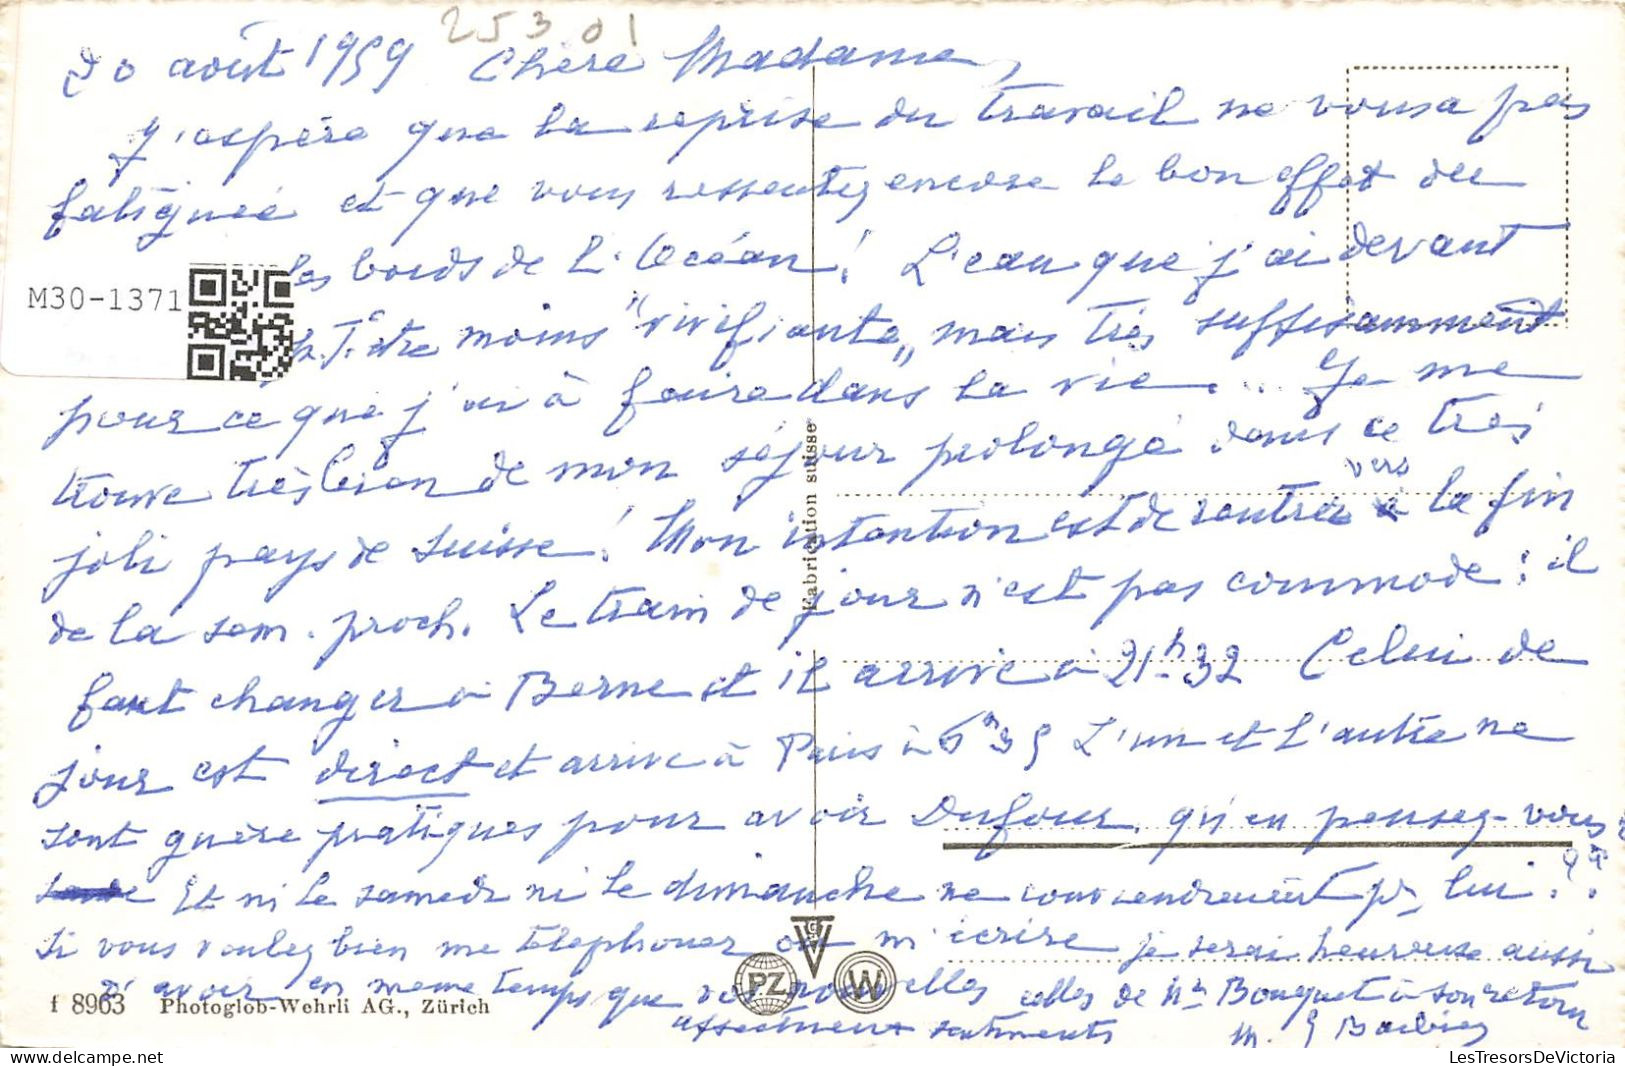 25301
20 août 1959 Chère Madame,
J'espère que la reprise du travail ne vous a pas
fatiguée et que vous ressentez encore le bon effet des
les bords de l'Océan! L'eau que j'ai devant
M30-1371
être moins "vivifiante" mais très suffisamment
pour ce que j'ai à faire dans la vie... Je me
trouve très bien de mon séjour prolongé dans ce très
joli pays de Suisse! Mon intention est de rentrer vers la fin
de la sem. proch. Le train de jour n'est pas commode: il
faut changer à Berne et il arrive à 21h32 Celui de
jour est direct et arrive à Paris à 6h35 L'un et l'autre ne
sont guère pratiques pour avoir Dufour, qu'en pensez-vous ?
Et ni le samedi ni le dimanche ne conviendraient pr lui.
Si vous voulez bien me téléphoner ou m'écrire je serai heureuse aussi
d'avoir en même temps que vos nouvelles celles de Mr Bouquet à son retour
affectueux sentiments M. J Barbier
Fabrication suisse
PZ
W
f 8963 Photoglob-Wehrli AG., Zürich
LesTresorsDeVictoria